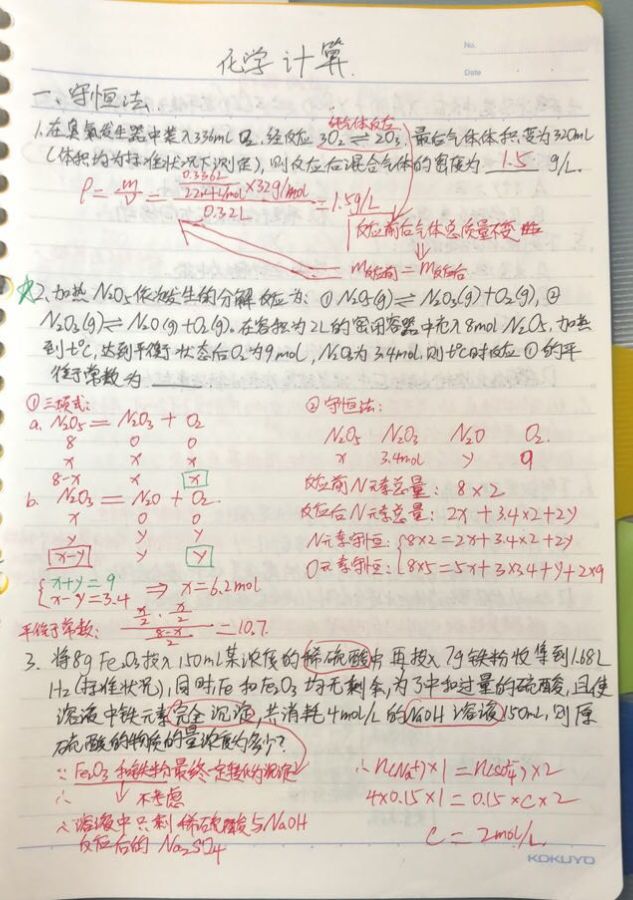 化学计算.
No.
Date
一、守恒法.
1.在臭氧发生器中装入336mL O₂,经反应 3O₂ ⇌ 2O₃,最后气体体积变为320mL
纯气体反应
(体积均为标准状况下测定),则反应后混合气体的密度为 1.5 g/L.
ρ = m/V = (0.336L/22.4L/mol × 32g/mol)/0.32L = 1.5g/L
反应前后气体总质量不变
m反应前 = m反应后
☆2.加热N₂O₅依次发生的分解反应为: ① N₂O₅(g) ⇌ N₂O₃(g)+O₂(g), ②
N₂O₃(g) ⇌ N₂O(g)+O₂(g). 在容积为2L的密闭容器中充入8mol N₂O₅, 加热
到t℃,达到平衡状态后O₂为9mol, N₂O₃为3.4mol,则t℃时反应①的平
衡常数为
① 三项式:
a. N₂O₅ = N₂O₃ + O₂
8 0 0
x x x
8-x x x
b. N₂O₃ = N₂O + O₂.
x 0 0
y y y
x-y y y
{x+y=9
x-y=3.4 ⇒ x=6.2mol
平衡常数: (x/2 · x/2)/((8-x)/2) = 10.7.
② 守恒法:
N₂O₅ N₂O₃ N₂O O₂.
x 3.4mol y 9
反应前N元素总量: 8×2
反应后N元素总量: 2x+3.4×2+2y
N元素守恒: {8×2=2x+3.4×2+2y
O元素守恒: {8×5=5x+3×3.4+y+2×9
3. 将8g Fe₂O₃投入150mL某浓度的稀硫酸中,再投入7g铁粉收集到1.68L
H₂(标准状况),同时Fe和Fe₂O₃均无剩余,为了中和过量的硫酸,且使
溶液中铁元素完全沉淀,共消耗4mol/L的NaOH溶液150mL,则原
硫酸的物质的量浓度为多少?
∵ Fe₂O₃和铁粉最终定转为沉淀
∴ ↓ 不考虑
∴ 溶液中只剩稀硫酸与NaOH
反应后的Na₂SO₄
∴ n(Na⁺)×1 = n(SO₄²⁻)×2
4×0.15×1 = 0.15×c×2
c = 2mol/L
KOKUYO